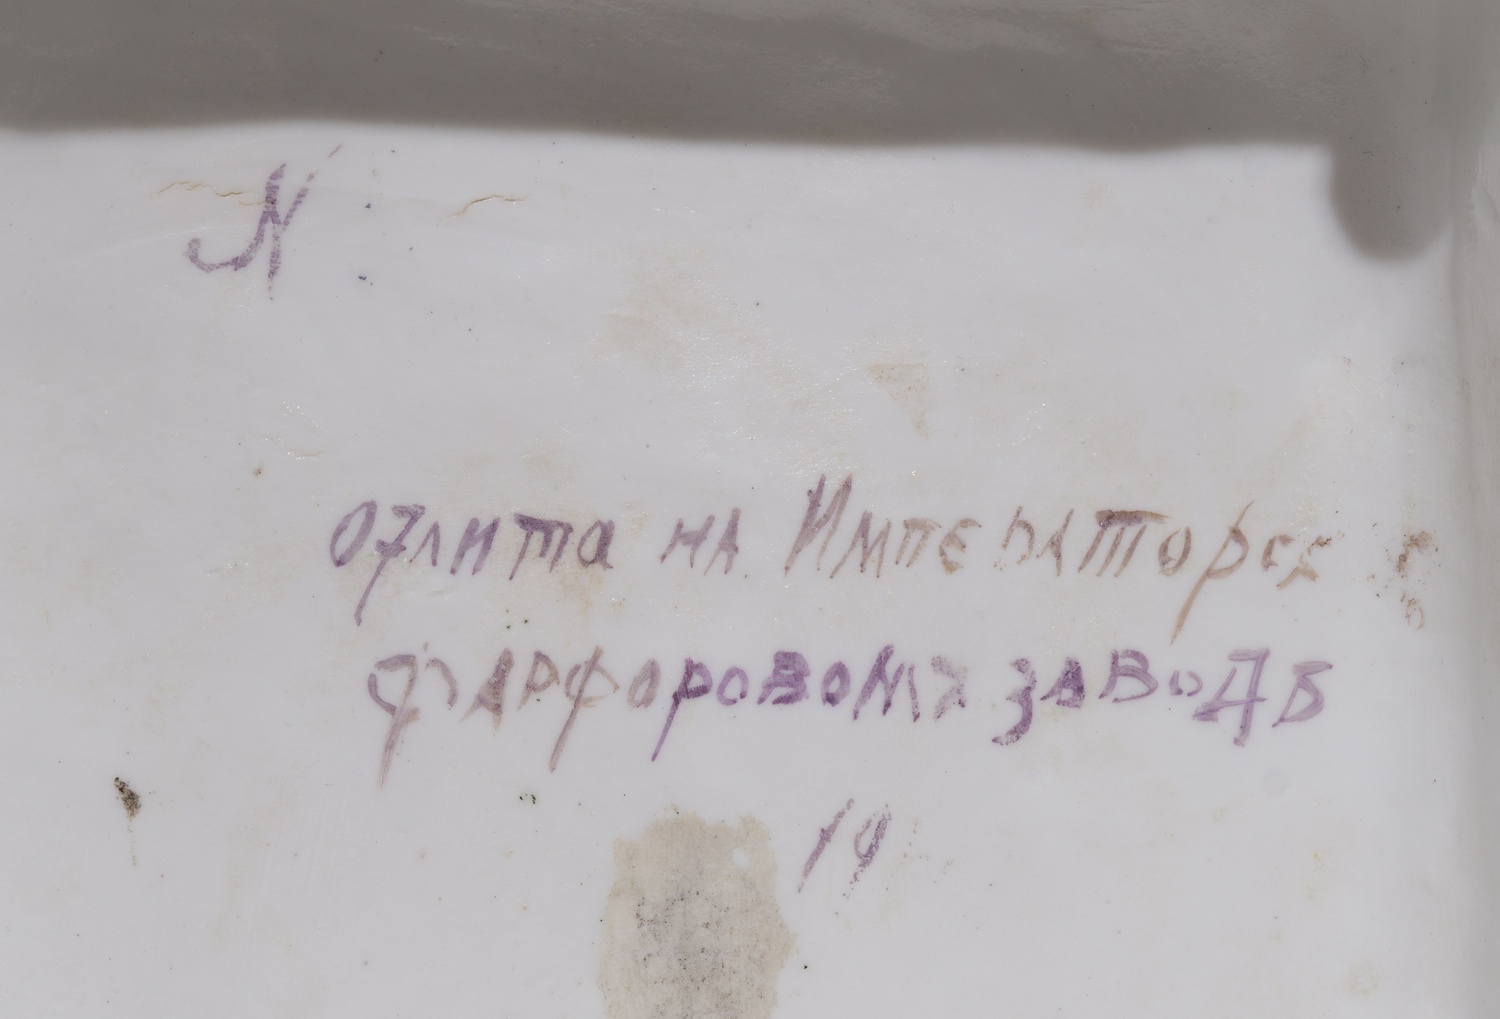 N
Отлита на Императорск
фарфоровомъ заводѣ
19